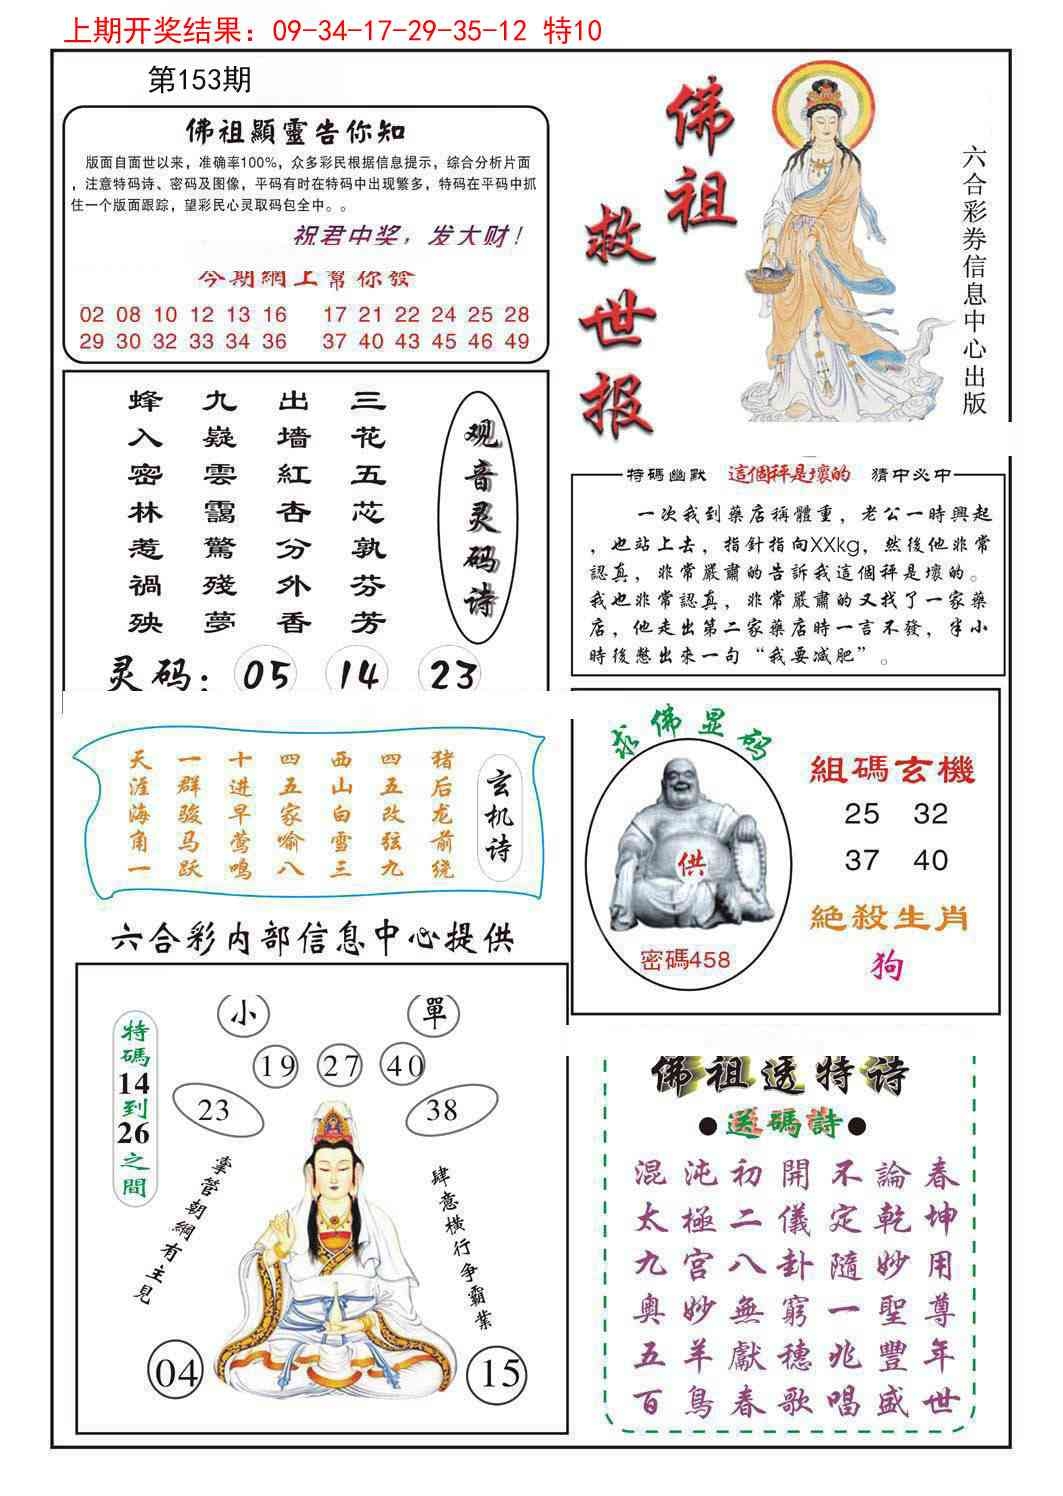 上期开奖结果：09-34-17-29-35-12 特10
第153期
佛祖顯靈告你知
版面自面世以来，准确率100%，众多彩民根据信息提示，综合分析片面
，注意特码诗、密码及图像，平码有时在特码中出现繁多，特码在平码中抓
住一个版面跟踪，望彩民心灵取码包全中。。
祝君中奖，发大财！
今期網上幫你發
02 08 10 12 13 16 17 21 22 24 25 28
29 30 32 33 34 36 37 40 43 45 46 49
佛祖
救世报
六合彩券信息中心出版
观音灵码诗
三花五芯孰芬芳
出墙紅杏分外香
九嶷雲靄驚殘夢
蜂入密林惹禍殃
灵码：05 14 23
特碼幽默 這個秤是壞的 猜中必中
一次我到藥店稱體重，老公一時興起
，也站上去，指針指向XXkg，然後他非常
認真，非常嚴肅的告訴我這個秤是壞的。
我也非常認真，非常嚴肅的又找了一家藥
店，他走出第二家藥店時一言不發，半小
時後憋出來一句“我要减肥”。
玄机诗
猪后龙前绕
四五改弦九
西山白雪三
四五家喻八
十进早莺鸣
一群骏马跃
天涯海角一
六合彩内部信息中心提供
求佛显码
供
密碼458
組碼玄機
25 32
37 40
絕殺生肖
狗
特碼14到26之間
小 單
19 27 40
23 38
掌管朝綱有主見
肆意横行争霸業
04 15
佛祖透特诗
●送碼詩●
混沌初開不論春
太極二儀定乾坤
九宮八卦隨妙用
奥妙無窮一聖尊
五羊獻穗兆豐年
百鳥春歌唱盛世